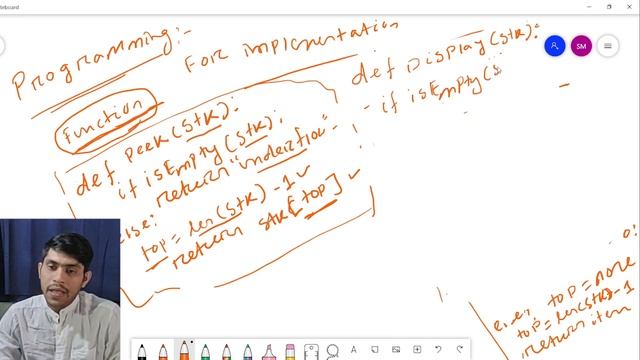 Whiteboard
Programming:-
For implementation
Function
def peek(Stk):
if isEmpty(Stk):
return "underflow"
else:
top = len(Stk)-1
return stk[top]
def Display(Stk):
if isEmpty(s
SM
else: top = none
top = len(stk)-1
return item